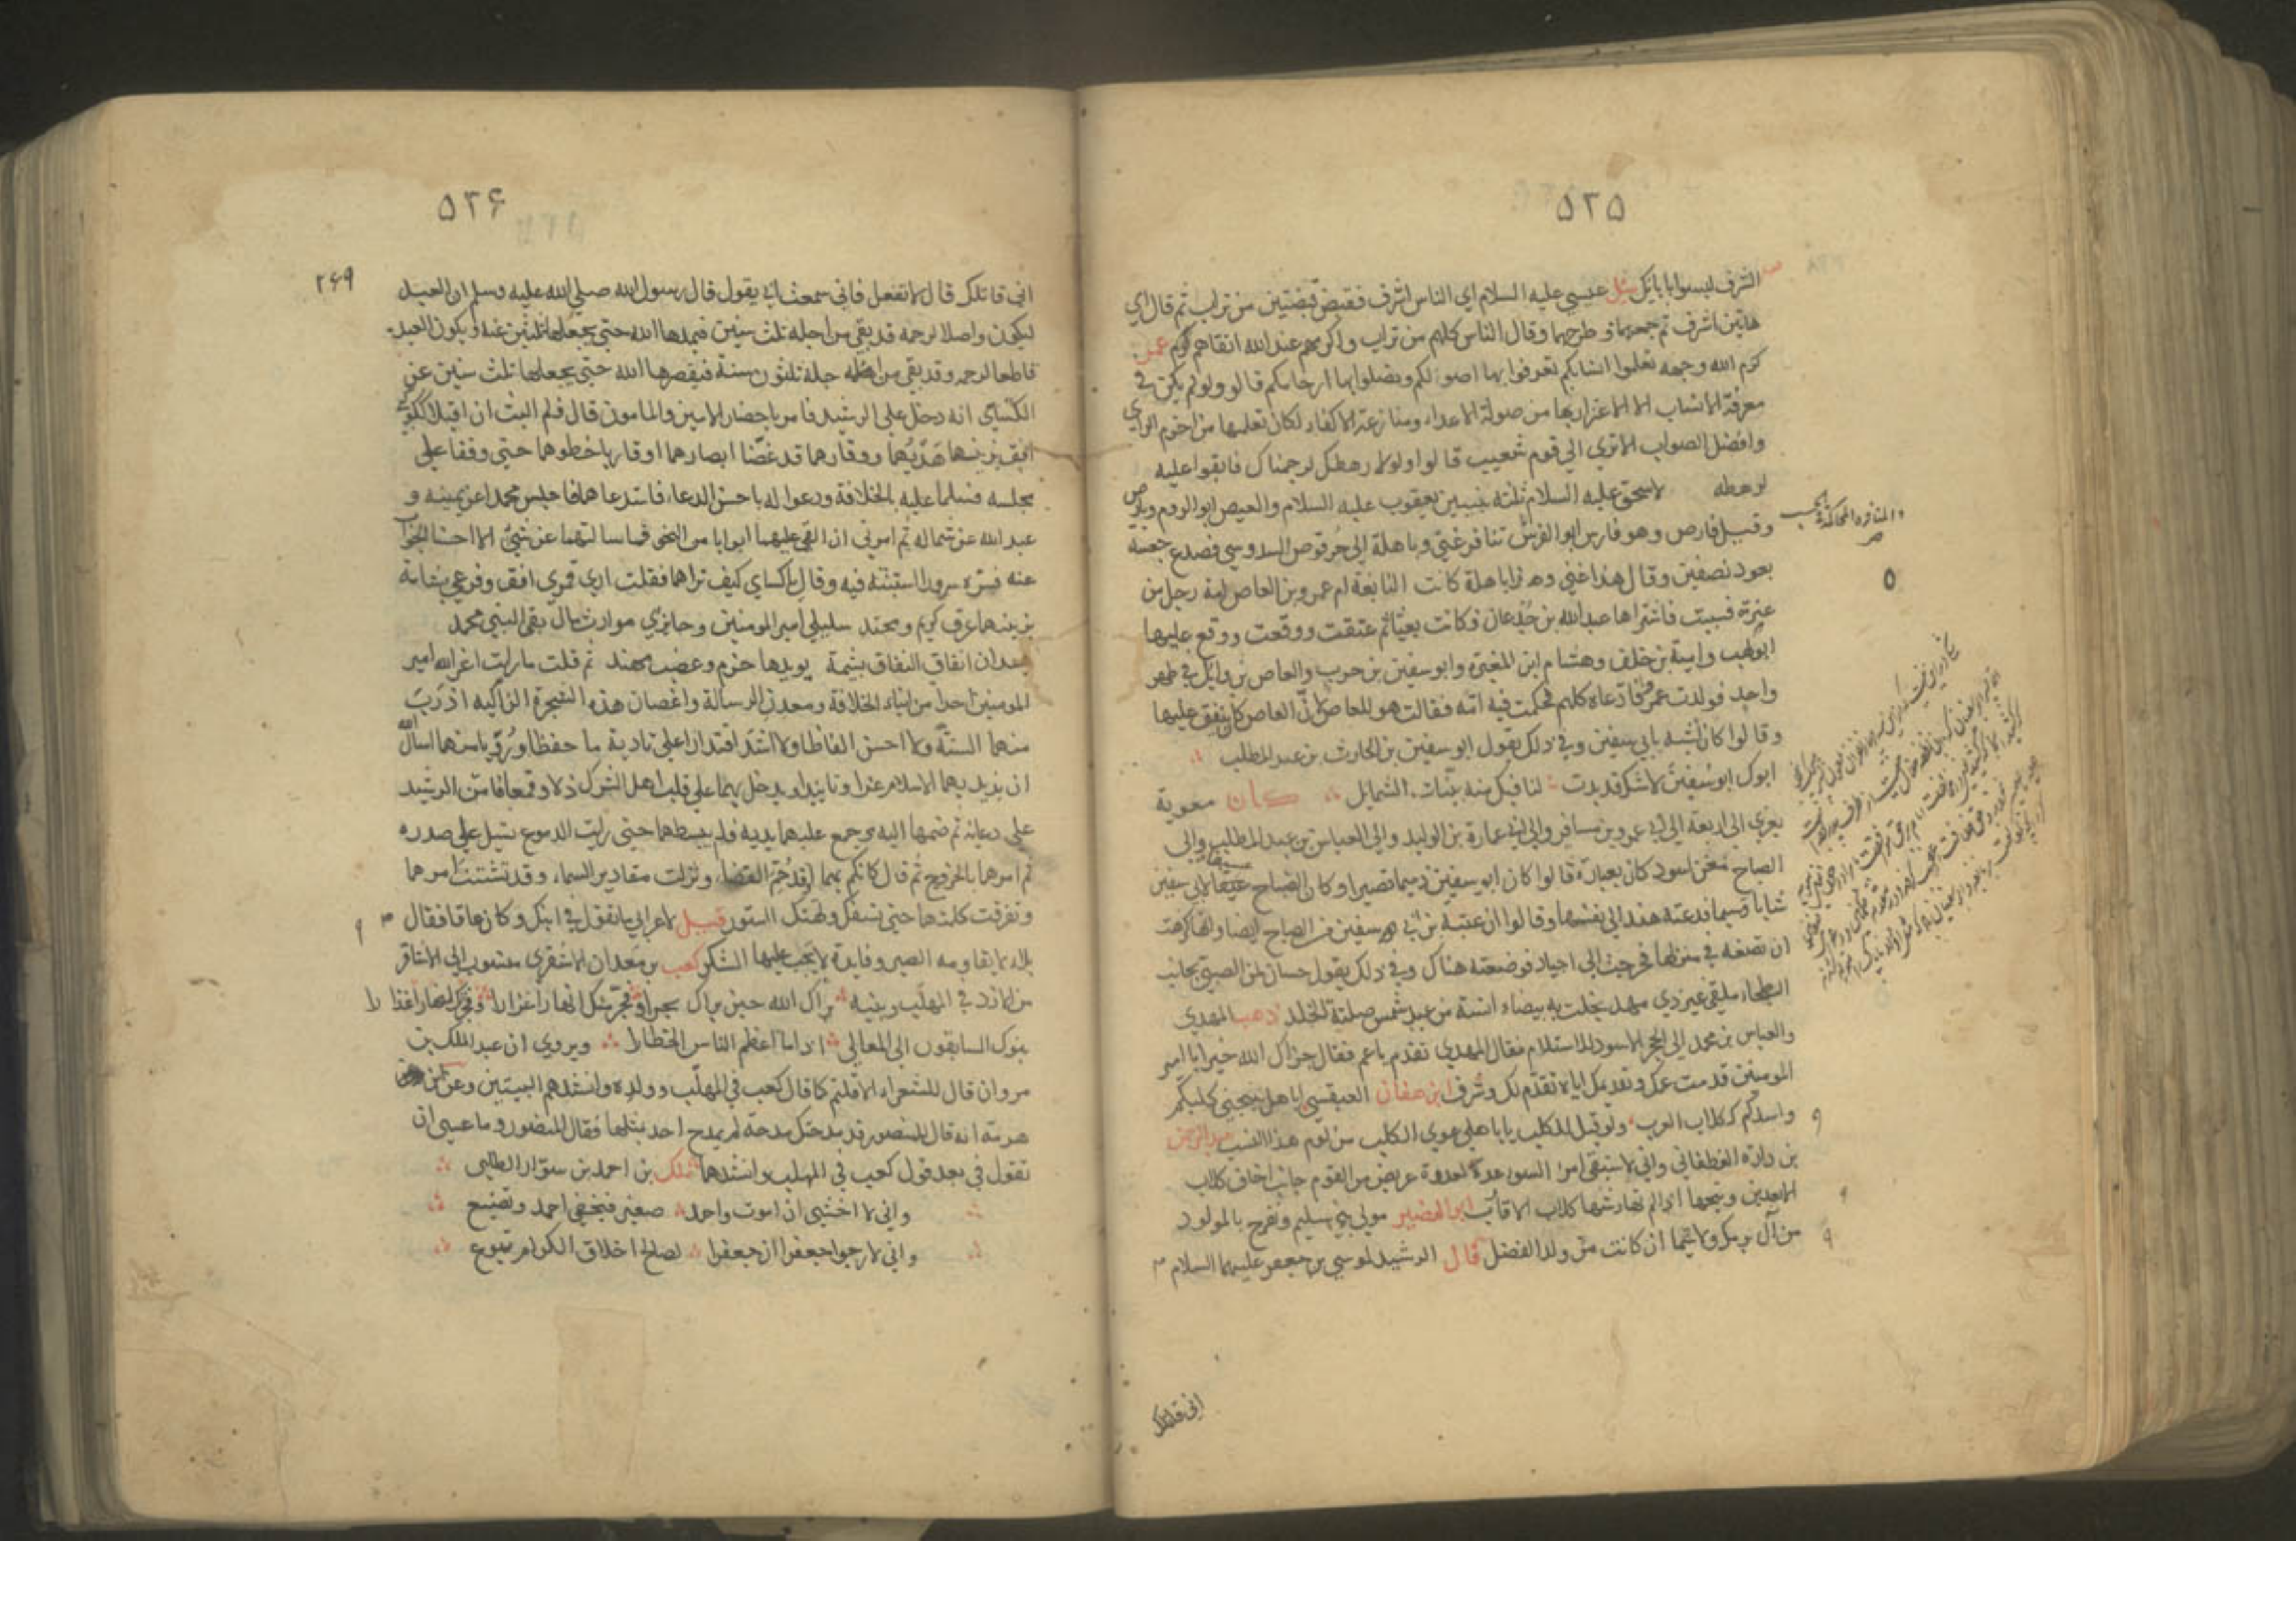 ۵۲۵
الشرف ليسوابابائك سئل عيسى عليه السلام اي الناس اشرف فقبض قبضتين من تراب ثم قال اي
هاتين اشرف ثم جمعهما و طرحهما وقال الناس كلهم من تراب واكرمهم عند الله اتقاهم
كرم الله وجهه تعلموا انسابكم تعرفوا بها اصولكم وتصلوا بها ارحامكم قالوا ولو لم يكن في
معرفة الانساب الا الاعتزاز بها من صولة الاعداء ومنازعة الاكفاء لكان تعلمها من احزم الراي
وافضل الصواب الاتري الي قوم شعيب قالوا ولولا رهطك لرجمناك فابقوا عليه
لرهطه لاسحق عليه السلام ثلثة بنين يعقوب عليه السلام والعيص ابوالروم
وقيل فارص وهو فارس ابوالفرس تنافر غني وباهلة الي حرقوص السدوسي فصدع جعبة
بعود نصفين وقال هذا غني وهذا باهلة كانت النابغة ام عمرو بن العاص امة رجل من
عنزة فسبيت فاشتراها عبدالله بن جدعان فكانت بغيا ثم عتقت ووقعت ووقع عليها
ابولهب وامية بن خلف وهشام ابن المغيرة وابو سفين بن حرب والعاص بن وائل في طهر
واحد فولدت عمرو فادعاه كلهم فحكمت فيه امه فقالت هو للعاص لان العاص كان ينفق عليها
وقالوا كان اشبه بابي سفين وفي ذلك يقول ابو سفين بن الحارث بن عبد المطلب
ابوك ابو سفين لاشك قد بدت لنا فيك منه بينات الشمايل كان معوية
يعزي الي اربعة الي ابي عمرو بن مسافر والي ابي عمارة بن الوليد والي العباس بن عبد المطلب والي
الصباح مغن اسود كان بعمارة قالوا كان ابو سفين دميما قصيرا وكان الصباح عسيفا لابي سفين
شابا وسيما فدعته هند الي نفسها وقالوا ان عتبة بن ابي سفين من الصباح ايضا وانها كرهت
ان تضعه في منزلها فخرجت الي اجياد فوضعته هناك وفي ذلك يقول حسان لمن الصبي بجانب
البطحاء ملقي غير ذي مهد نجلت به بيضاء انسة من عبد شمس صلتة الخد ذهب المهدي
والعباس بن محمد الي الحجر الاسود للاستلام فقال المهدي تقدم ياعم فقال جزاك الله خيرا يا امير
المومنين قدمت عمك وتقديمك اياه تقدم لك وشرف ابن عفان العبقسي اباهل ينبحني كلبكم
واسدكم ككلاب العرب ولو قيل للكلب يا باهلي عوي الكلب من لوم هذا النسب عبدالرحمن
بن دارة الغطفاني واني لاستبقي امرا السوء عدة لعدوة عريض من القوم جانب اخاف كلاب
الابعدين ونبحها اذا لم تهارشها كلاب الاقارب ابو النضير مولي بني سليم وتفرح بالمولود
من آل برمك ولاسيما ان كانت من ولد الفضل قال الرشيد لموسي بن جعفر عليهما السلام
اني قاتلك
۵۲۶
۲۶۹
اني قاتلك قال لا تفعل فاني سمعت ابي يقول قال رسول الله صلي الله عليه وسلم ان العبد
ليكون واصلا لرحمه قد بقي من اجله ثلث سنين فيمدها الله حتي يجعلها ثلثين سنة ويكون العبد
قاطعا لرحمه وقد بقي من اجله ثلثون سنة فيقصرها الله حتي يجعلها ثلث سنين عن
الكسائي انه دخل علي الرشيد فامر باحضار الامين والمامون قال فلم البث ان اقبلا ككوكبي
افق يزينهما هديهما ووقارهما قد غضا ابصارهما وقاربا خطوهما حتي وقفا علي
مجلسه فسلما عليه بالخلافة ودعوا له باحسن الدعاء فاستدعاهما فاجلس محمدا عن يمينه و
عبد الله عن شماله ثم امرني ان القي عليهما ابوابا من النحو فما سالتهما عن شيء الا احسنا الجواب
عنه فسره سرورا استبنته فيه وقال يا كسائي كيف تراهما فقلت اري قمري افق وفرعي بشامة
يزينهما عرق كريم ومحتد سليلي امير المومنين وحائزي مواريث ما ابقي النبي محمد
يسدان انفاق النفاق بشيمة يويدها حزم وعضب مهند ثم قلت ما رايت اعز الله امير
المومنين احدا من ابناء الخلافة ومعدن الرسالة واغصان هذه الشجرة الزاكية اذرب
منهما السنة ولا احسن الفاظا ولا اشد اقتدارا علي تادية ما حفظا ورويا منهما اسال الله
ان يزيد بهما الاسلام عزا وتاييدا ويدخل بهما علي قلب اهل الشرك ذلا وقمعا فامن الرشيد
علي دعائه ثم ضمهما اليه وجمع عليهما يديه فلم يبسطهما حتي رايت الدموع تسيل علي صدره
ثم امرهما بالخروج ثم قال كانكم بهما لو قد حم القضاء ونزلت مقادير السماء وقد تشتت امرهما
وتفرقت كلمتهما حتي تسفك وتهتك الستور قيل لاعرابي ما تقول في ابنك وكان عاقا فقال
بلاء لا يقاومه الصبر وفايدة لا يجب عليها الشكر كعب بن معدان الاشقري منسوب الي الاشاقر
من الازد في المهلب وبنيه براك الله حين براك بحرا وفجر منك انهارا غزارا
بنوك السابقون الي المعالي اذا ما اعظم الناس الخطارا ويروي ان عبد الملك بن
مروان قال للشعراء الا قلتم كما قال كعب في المهلب وولده وانشدهم البيتين وعن ابن
هرمة انه قال للمنصور قد مدحتك مدحة لم يمدح احد بمثلها فقال المنصور وما عسي ان
تقول في بعد قول كعب في المهلب وانشدها ملك بن احمد بن سوار الطلبي
واني لا اخشي ان اموت واحمد صغير فيجفي احمد ويضيع
واني لارجو اجعفرا ان جعفرا لصالح اخلاق الكرام تبوع